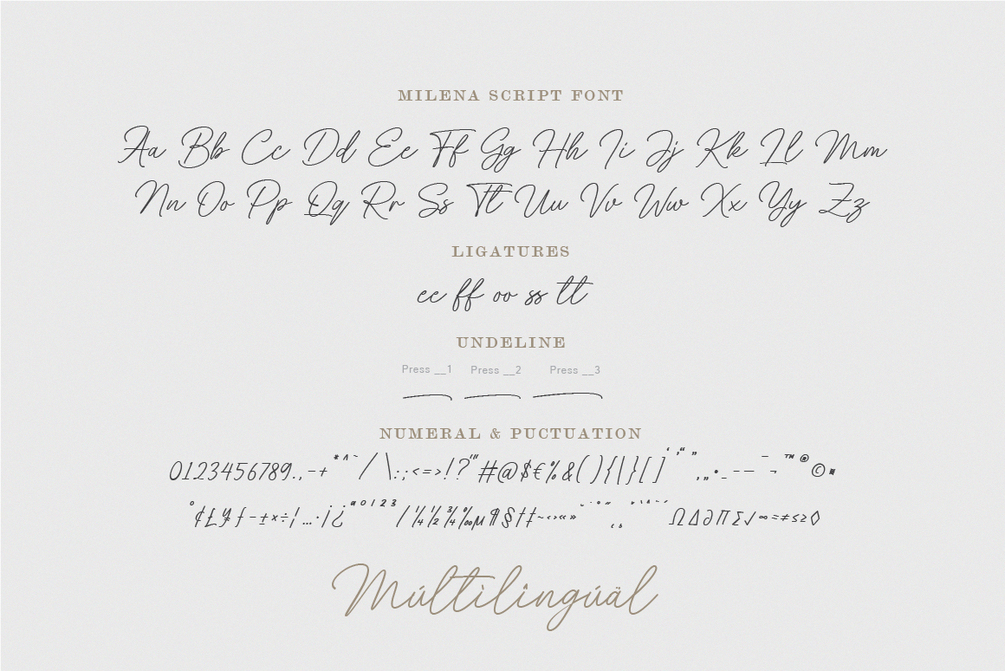 MILENA SCRIPT FONT
Aa Bb Cc Dd Ee Ff Gg Hh Ii Jj Kk Ll Mm
Nn Oo Pp Qq Rr Ss Tt Uu Vv Ww Xx Yy Zz
LIGATURES
ee ff oo ss tt
UNDELINE
Press __1 Press __2 Press __3
NUMERAL & PUCTUATION
0123456789.,-+*^~/\:;<=>!?"#@$€%&(){|}[]‘’“”‚„•_-—¯¬™®©
°¢£¥ƒ-±×÷¦…·¡¿ªº¹²³/¼½¾‰µ¶§†‡~‹›«»ΩΔ∂Π∑√∞≈≠≤≥◊
Múltìlîngúäl